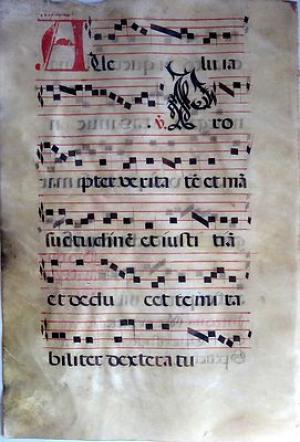 Alle luia
℣. Pro
pter verita tē et mā
suetudinē et iusti tiā
et dedu cet te mi ra
biliter dextera tu